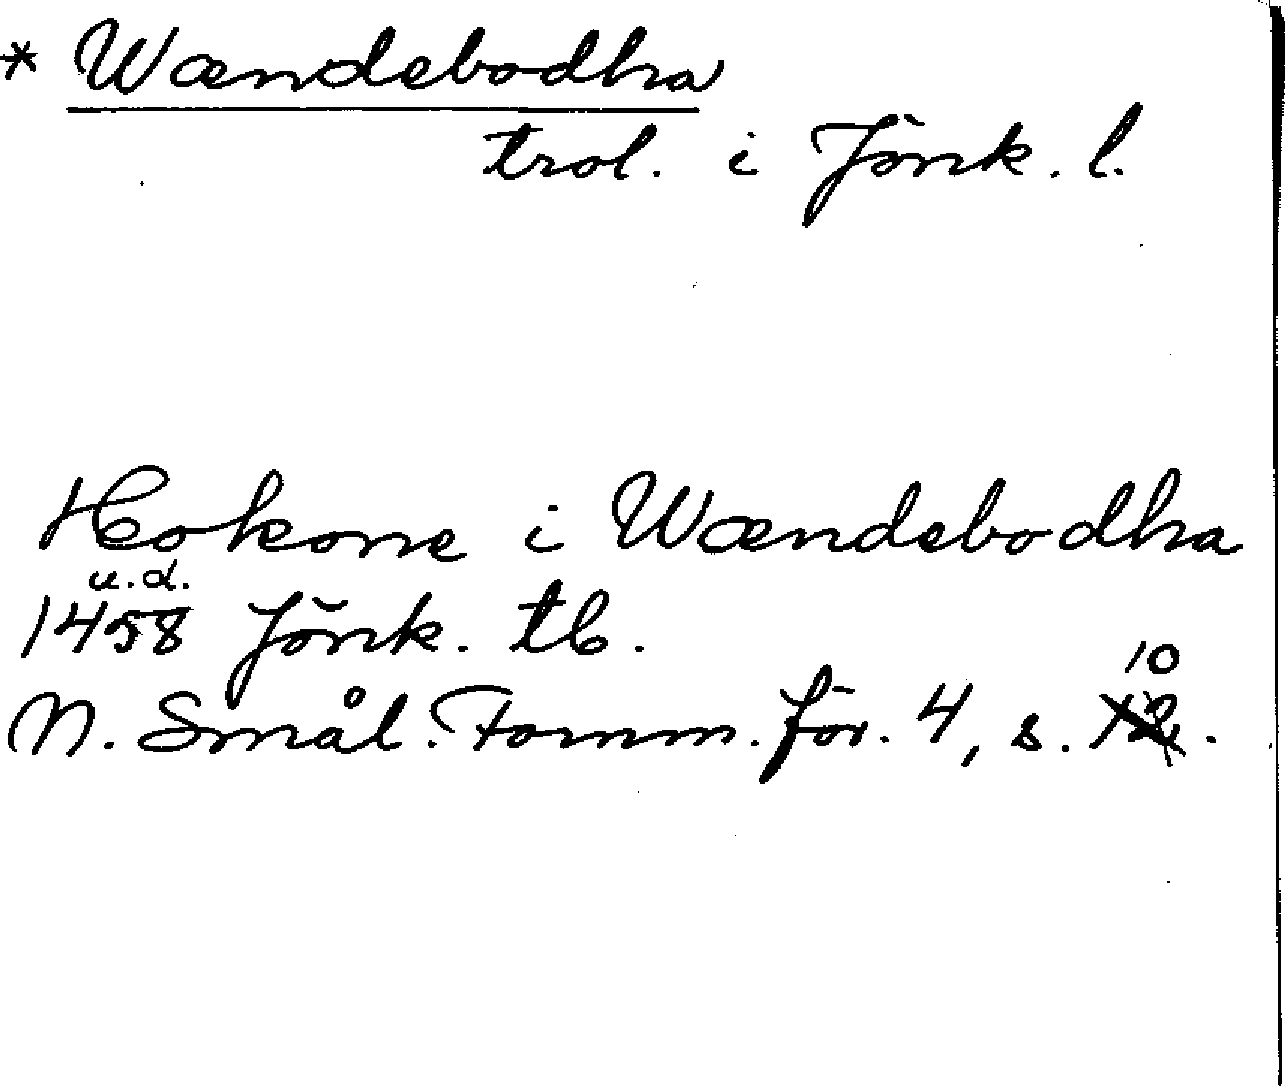 * Wændebodha
trol. i Jönk. l.
Hokone i Wændebodha
u.d.
1458 Jönk. tb.
10
N. Smål. Fornm. för. 4, s. 12.